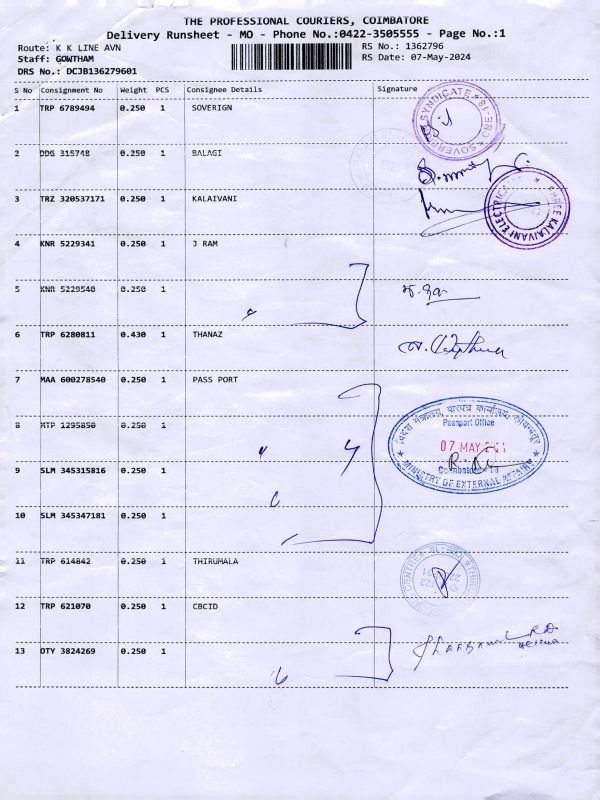 THE PROFESSIONAL COURIERS, COIMBATORE
Delivery Runsheet - MO - Phone No.:0422-3505555 - Page No.:1
Route: K K LINE AVN
RS No.: 1362796
Staff: GOWTHAM
RS Date: 07-May-2024
DRS No.: DCJB136279601
S No Consignment No Weight PCS Consignee Details Signature
1 TRP 6789494 0.250 1 SOVERIGN
2 DDG 315748 0.250 1 BALAGI
3 TRZ 320537171 0.250 1 KALAIVANI
4 KNR 5229341 0.250 1 J RAM
5 KNR 5229540 0.250 1
6 TRP 6280811 0.430 1 THANAZ
7 MAA 600278540 0.250 1 PASS PORT
8 MTP 1295850 0.250 1
9 SLM 345315816 0.250 1
10 SLM 345347181 0.250 1
11 TRP 614842 0.250 1 THIRUMALA
12 TRP 621070 0.250 1 CBCID
13 OTY 3824269 0.250 1
SYNDICATE
CBE-18
SHREE KALAIVANI ELECTRICALS
विदेश मंत्रालय, पारपत्र कार्यालय, कोयम्बत्तूर
Passport Office
07 MAY
Coimbatore - 18
MINISTRY OF EXTERNAL AFFAIRS
CENTRE